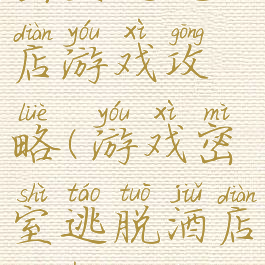 diàn yóu xì gōng
店游戏攻
lüè yóu xì mì
略(游戏密
shì táo tuō jiǔ diàn
室逃脱酒店